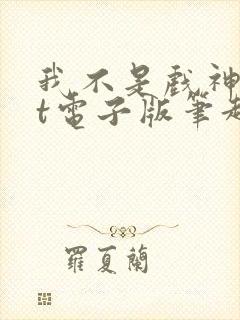 我不是戲神
t電子版筆趣
羅夏蘭